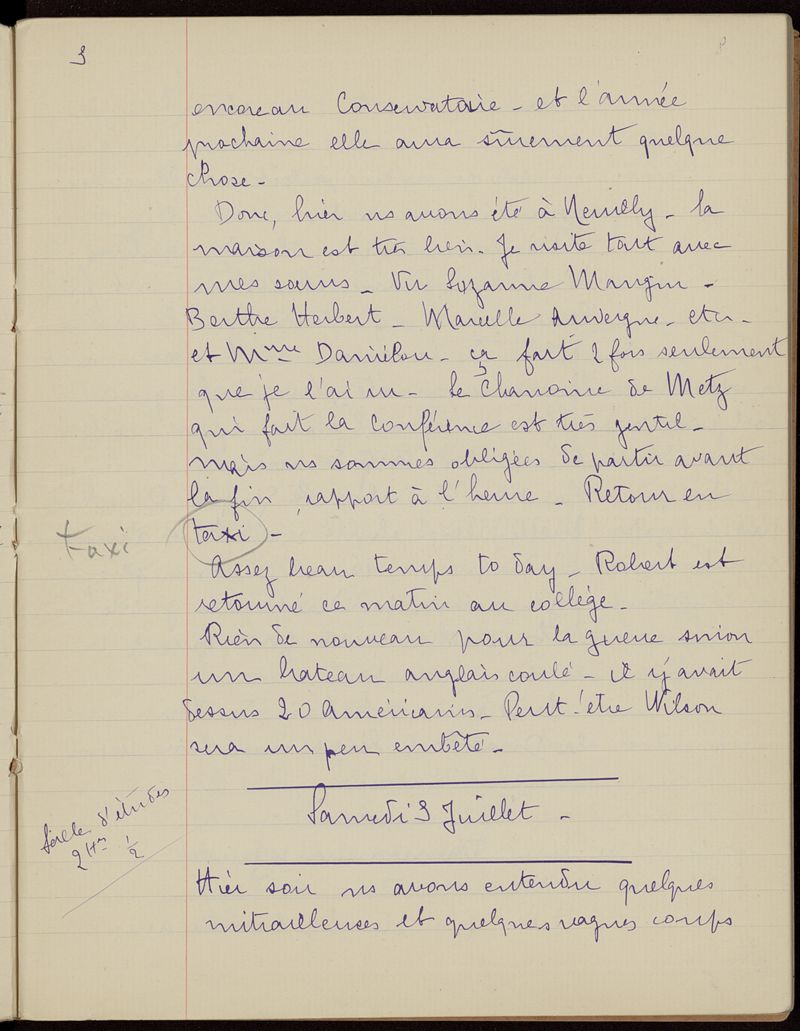 3
encore au Conservatoire - et l'année
prochaine elle aura sûrement quelque
chose -
Donc, hier ns avons été à Neuilly - la
maison est très bien. Je visite tout avec
mes sœurs - Vu Suzanne Mangin -
Berthe Herbert - Marcelle Auvergne - etc -
et Mme Daniélou - ça fait 2 fois seulement
que je l'ai vu - Le Chanoine de Metz
qui fait la conférence est très gentil -
mais ns sommes obligées de partir avant
la fin, rapport à l'heure - Retour en
taxi -
taxi
Assez beau temps to day - Robert est
retourné ce matin au collège -
Rien de nouveau pour la guerre sinon
un bateau anglais coulé - il y avait
dessus 20 américains - Peut'être Wilson
sera un peu embêté -
Samedi 3 Juillet -
Salle d'études
2 Hres 1/2
Hier soir ns avons entendu quelques
mitrailleuses et quelques vagues coups